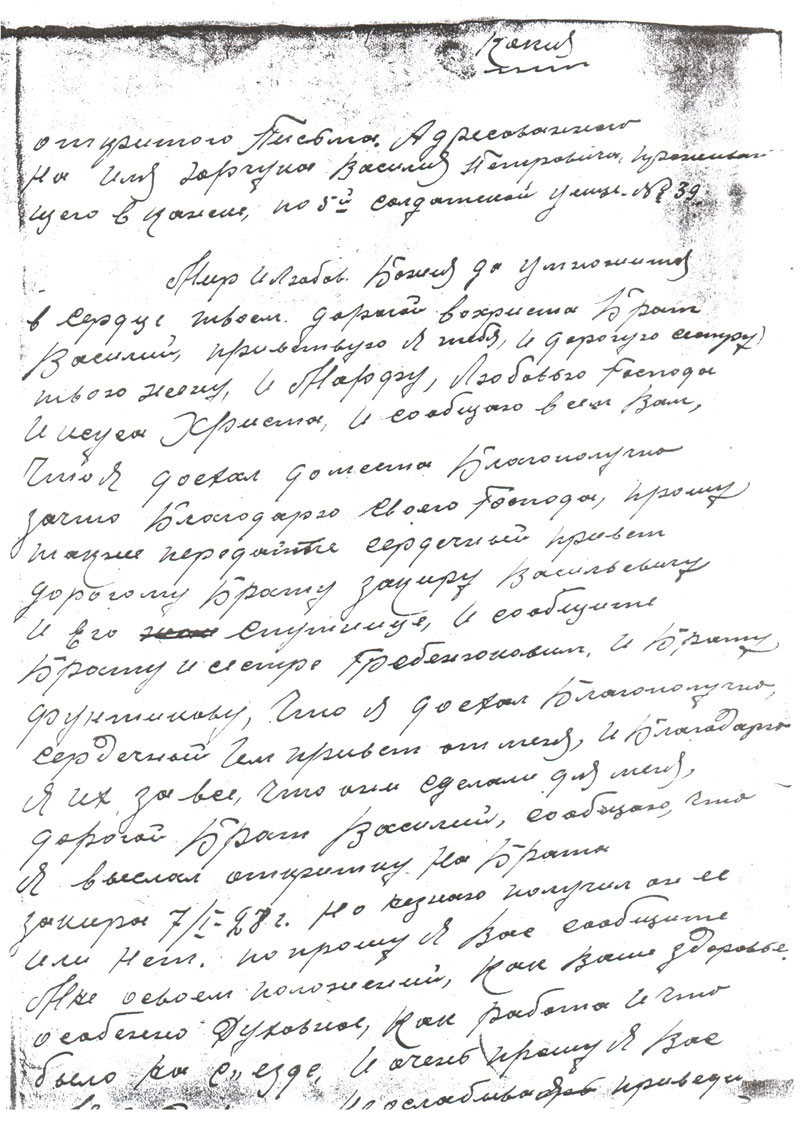 Копия
открытого Письма, Адресованного
на имя Заргуна Василия Петровича, проживаю
щего в Канске, по 5й солдатской улице № 39
Мир и Любовь Божия да умножится
в сердце твоем дорогой вохриста Брат
Василий, приветствую я тебя, и дорогую сестру
твою жену, и Марфу, Любовью Господа
Иисуса Христа, и сообщаю всем Вам,
Что я доехал до места Благополучно
зачто Благодарю своего Господа, прошу
также передайте сердечный привет
дорогому Брату закиру Васильевичу
и Его спутнице, и сообщите
Брату и сестре Гребенюковым, и Брату
Фунтикову, Что я доехал Благополучно,
сердечный Им привет от меня, и Благодарю
я их за все, Что они сделали для меня,
дорогой Брат Василий, сообщаю, что
я выслал открытку на Брата
закира 7/I-28 г. но незнаю получил он ее
или нет. попрошу я Вас сообщите
Мне освоем положений, Как Ваше здоровье
особенно Духовное, Как работа и что
было на с„езде, и очень прошу я Вас
приведи